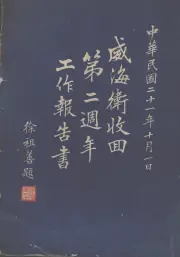 中華民國二十一年十月一日
威海衛收回
第二週年
工作報告書
徐祖善題